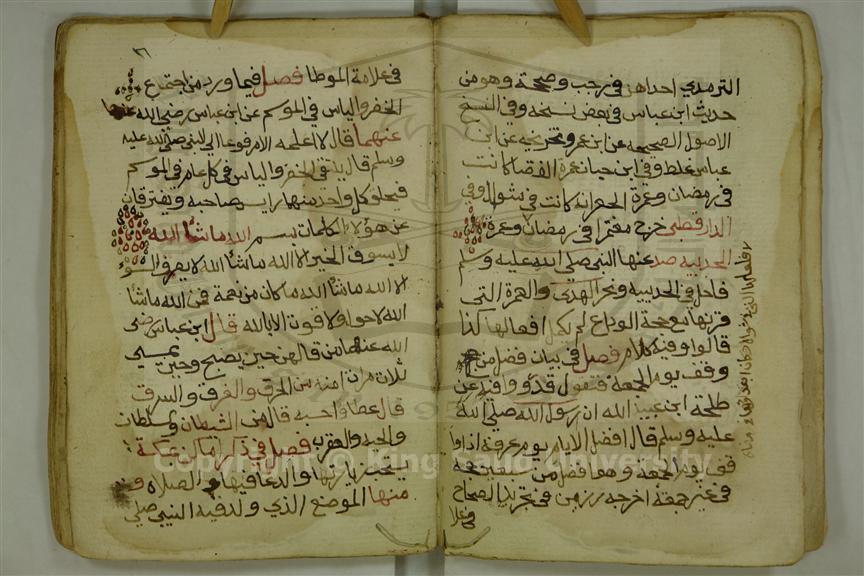 الترمدي احداهن في رجب وصححة وهو من
حديث ابن عباس في بعض نسخه وفي النسخ
الاصول الصحيحه عن ابن عمر وتخريجه عن ابن
عباس غلط وفي ابن حبان عمرة القضا كانت
في رمضان وعمرة الجعرانه كانت في شوال وفي
الدارقطني خرج معتمرا في رمضان وعمرة
الحديبيه صد عنها النبي صلي الله عليه وسلم
فاحل في الحديبيه ونحر الهدي والعمرة التي
قرنها مع حجة الوداع لم يكمل افعالها كذا
قالوا وفيه كلام فصل في بيان فضل من
وقف يوم الجمعه فنقول قدروا وافد عن
طلحة ابن عبيد الله ان رسول الله صلي الله
عليه وسلم قال افضل الايام يوم عرفة اذا وا
فق يوم الجمعة وهو افضل من سبعين حجه
في غير جمعة اخرجه رزين في تجريد الصحاح
وعلا
في علامة الموطا فصل فيما ورد من اجتماع
الخضر والياس في الموسم عن ابن عباس رضي الله عنهما
عنهما قال لا اعلمه الا مرفوعا الي النبي صلي الله عليه
وسلم قال يلتقي الخضر والياس في كل عام في الموسم
فيحلق كل واحد منهما راس صاحبه ويفترقان
عن هؤلاء الكلمات بسم الله ماشا الله
لا يسوق الخير الا الله ماشا الله لا يصرف السوء
الا الله ماشا الله ما كان من نعمة فمن الله ماشا
الله لا حول ولا قوة الا بالله قال ابن عباس رضي
الله عنهما من قالهن حين يصبح وحين يمسي
ثلاث مرات امنه من الحرق والغرق والسرق
قال عطا واحسبه قال من الشيطان والسلطان
والحيه والعقرب فصل في ذكر اماكن بمكة
يستحب زيارتها والدعا فيها والصلاه
منها الموضع الذي ولد فيه النبي صلي
Copyright © King Saud University